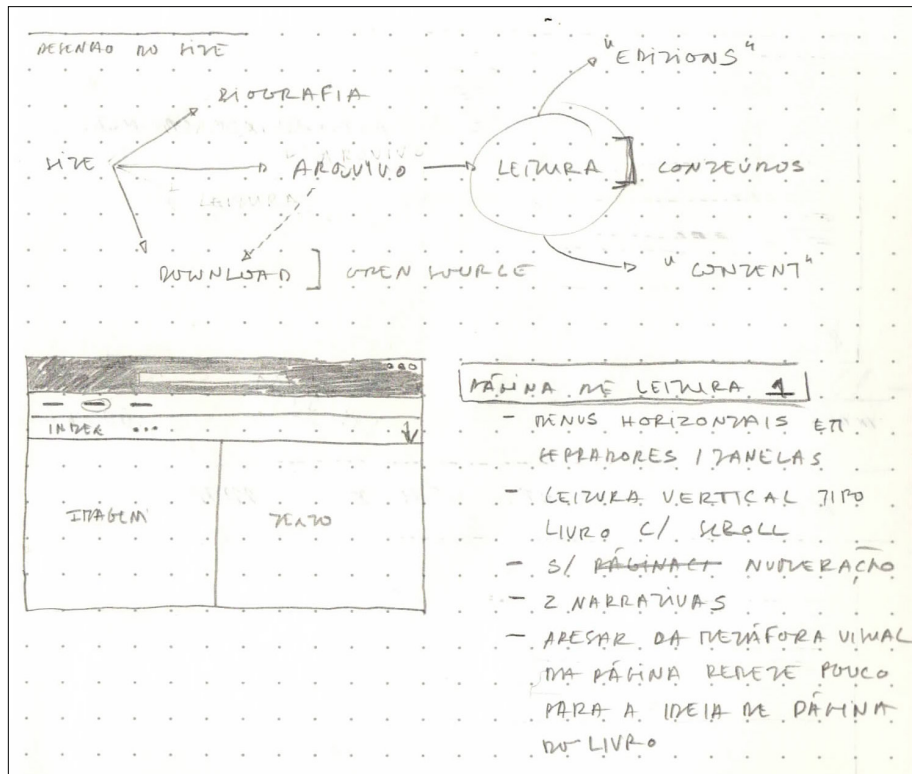 DESENHO DO SITE
"EDITIONS"
BIOGRAFIA
SITE
ARQUIVO
LEITURA ] CONTEÚDOS
DOWNLOAD ] OPEN SOURCE
"CONTENT"
INDEX ...
IMAGEM
TEXTO
PÁGINA DE LEITURA 1
- MENUS HORIZONTAIS EM
SEPARADORES / JANELAS
- LEITURA VERTICAL TIPO
LIVRO C/ SCROLL
- S/ PÁGINAÇ NUMERAÇÃO
- 2 NARRATIVAS
- APESAR DA METÁFORA VISUAL
DA PÁGINA REMETE POUCO
PARA A IDEIA DE PÁGINA
DO LIVRO